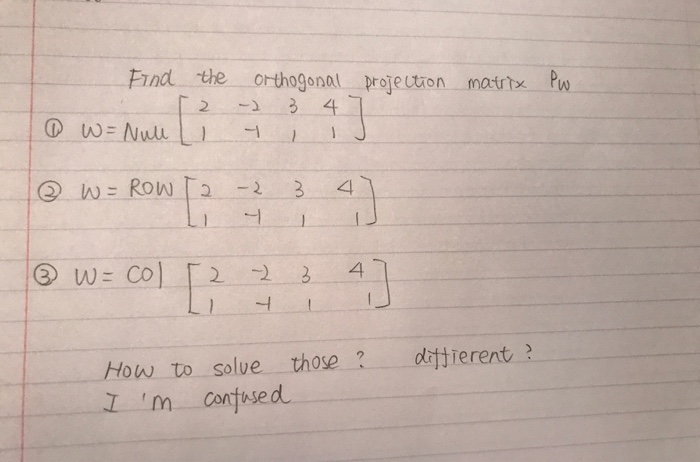 Find the orthogonal projection matrix Pw
① W = Null [ 2 -2 3 4
1 -1 1 1 ]
② W = ROW [ 2 -2 3 4
1 -1 1 1 ]
③ W = COl [ 2 -2 3 4
1 -1 1 1 ]
How to solve those ? diffierent ?
I 'm confused